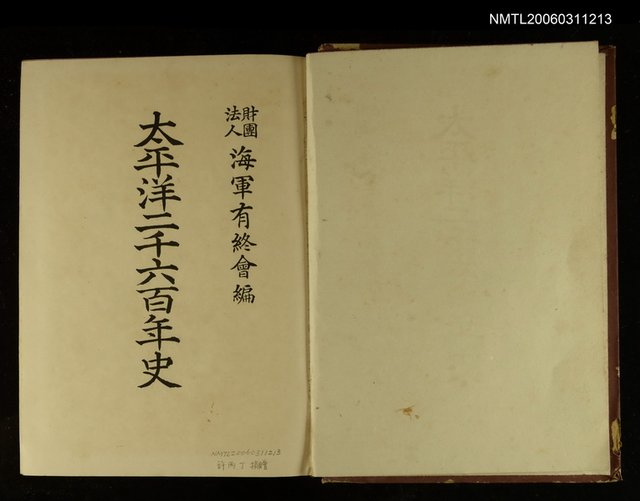 NMTL20060311213
財團法人 海軍有終會編
太平洋二千六百年史
NMTL20060311213
許丙丁 捐贈